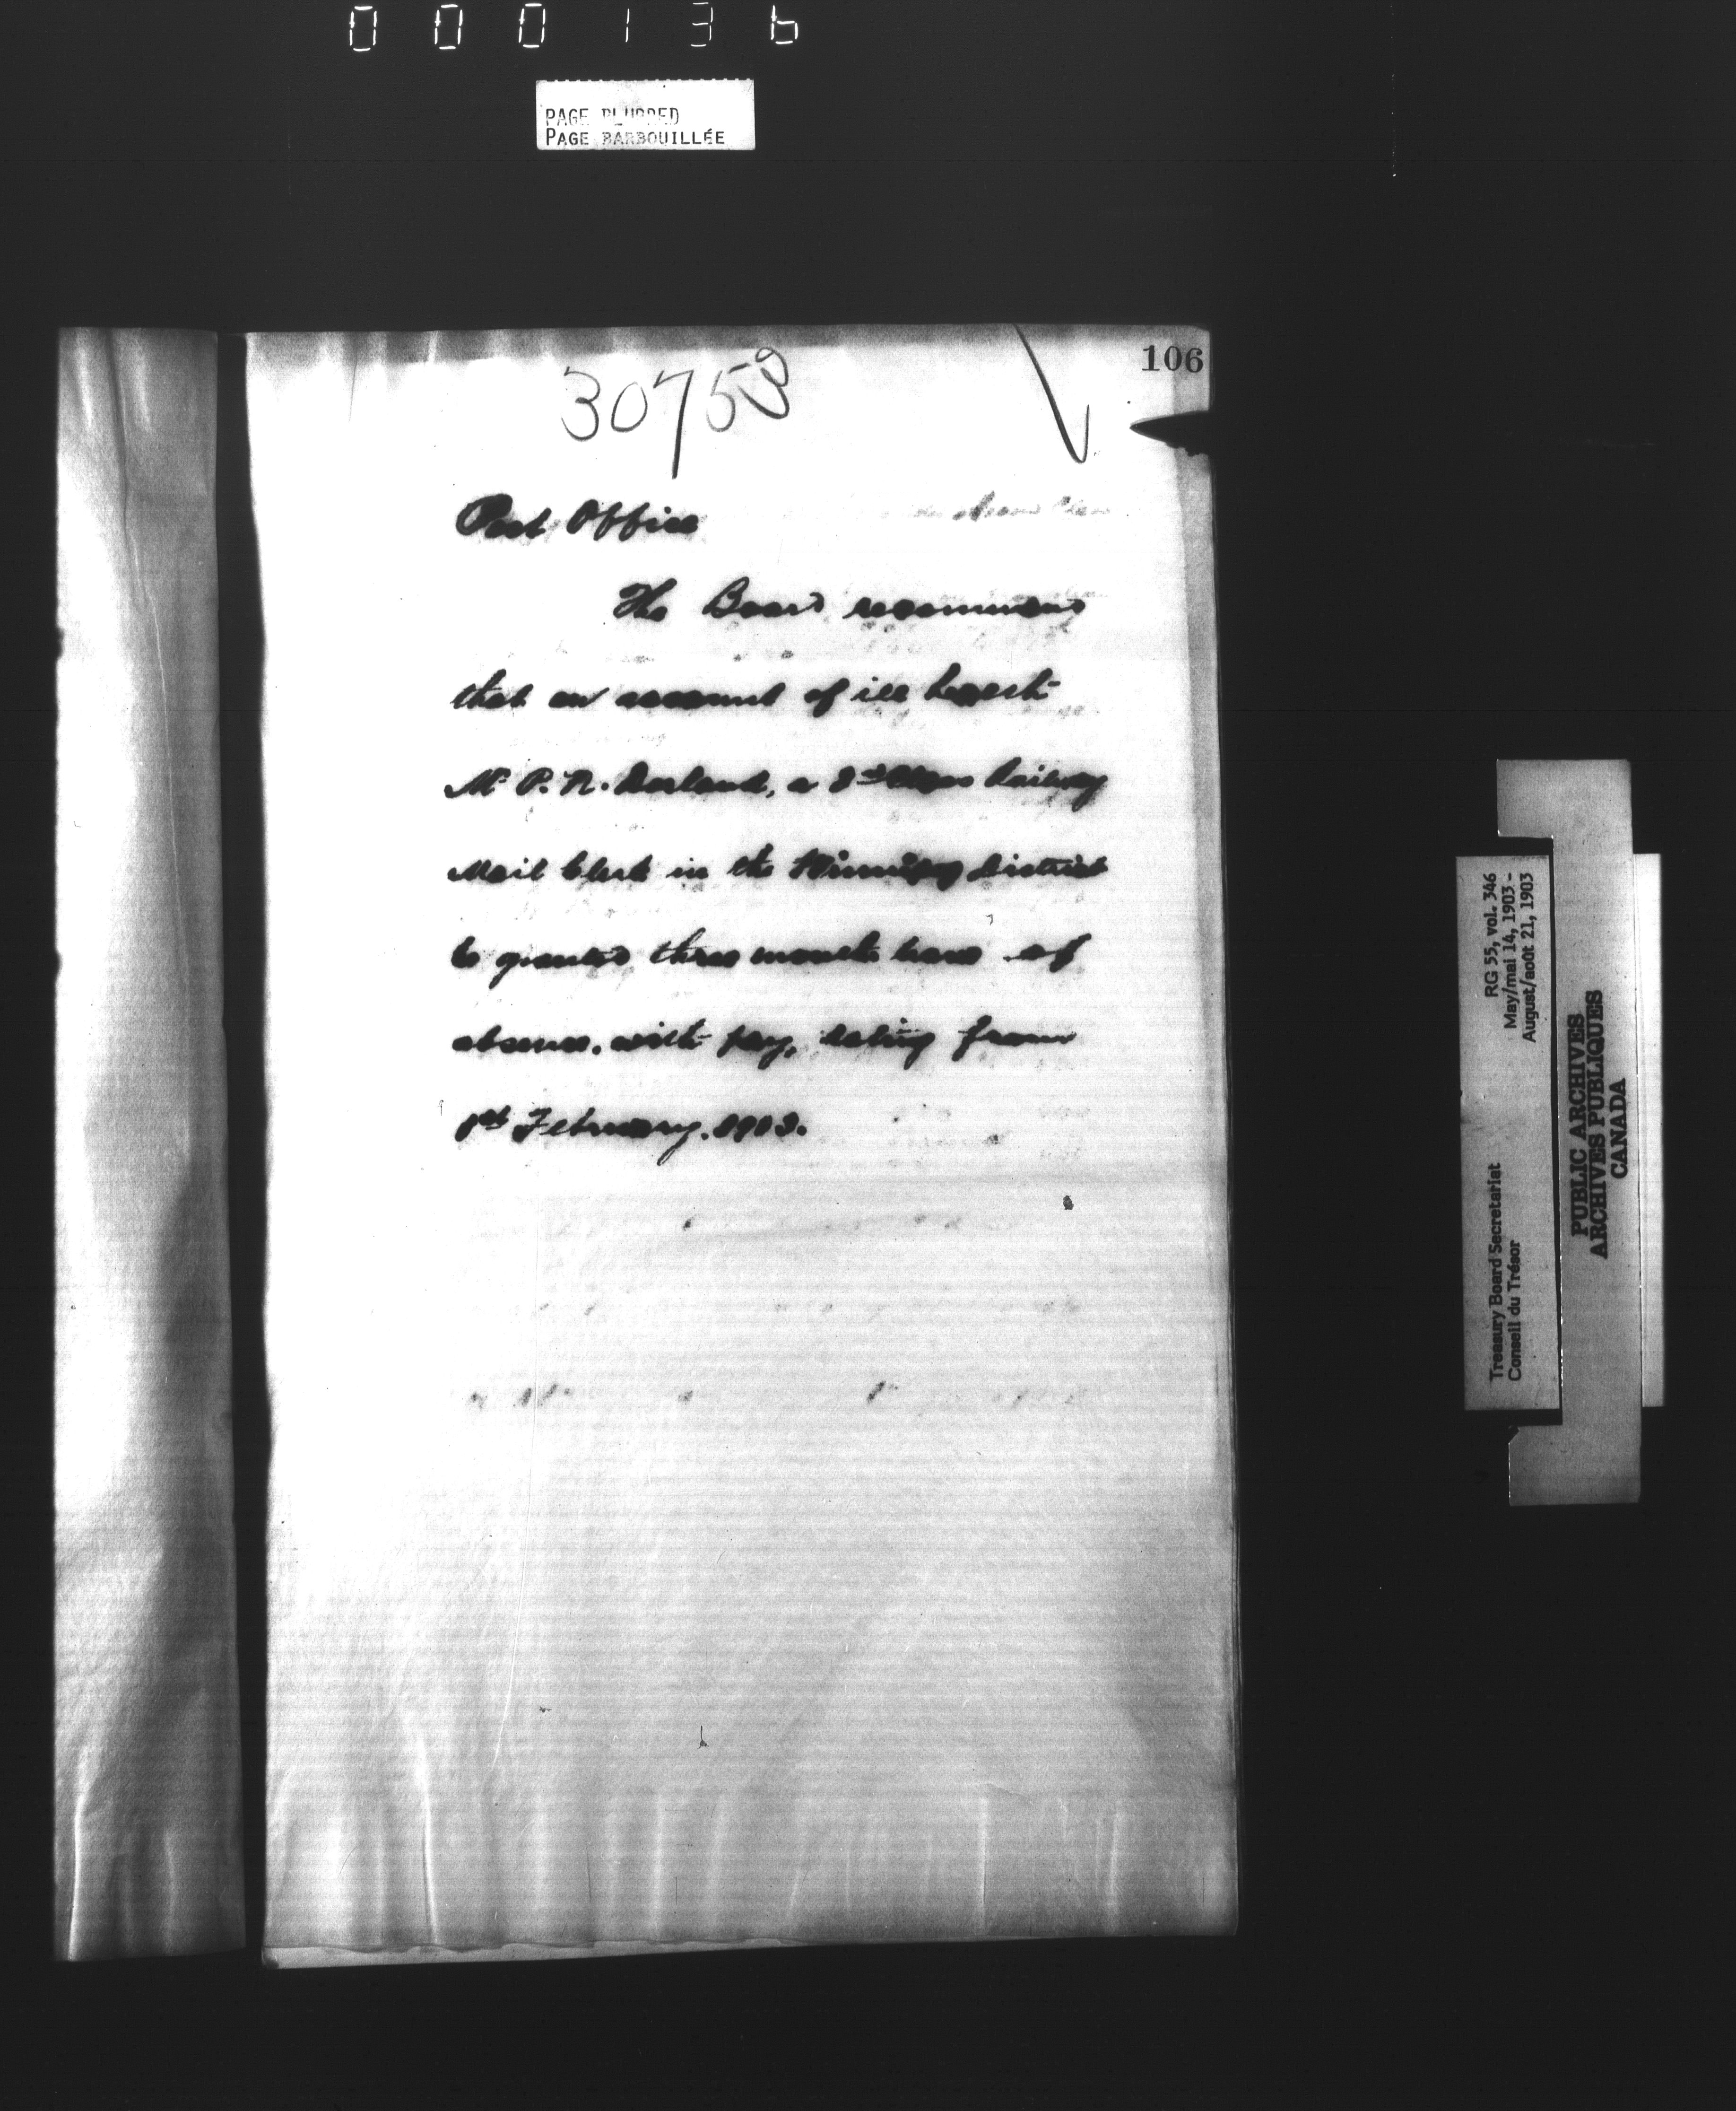 000136
PAGE BLURRED
PAGE BARBOUILLÉE
106
30753
Post Office
The Board recommend
that on account of ill health
Mr P. N. Dorland, a 3rd Class Railway
Mail Clerk in the Winnipeg District
be granted three months leave of
absence, with pay, dating from
1st February, 1903.
RG 55, vol. 346
May/mai 14, 1903 -
August/août 21, 1903
Treasury Board Secretariat
Conseil du Trésor
PUBLIC ARCHIVES
ARCHIVES PUBLIQUES
CANADA